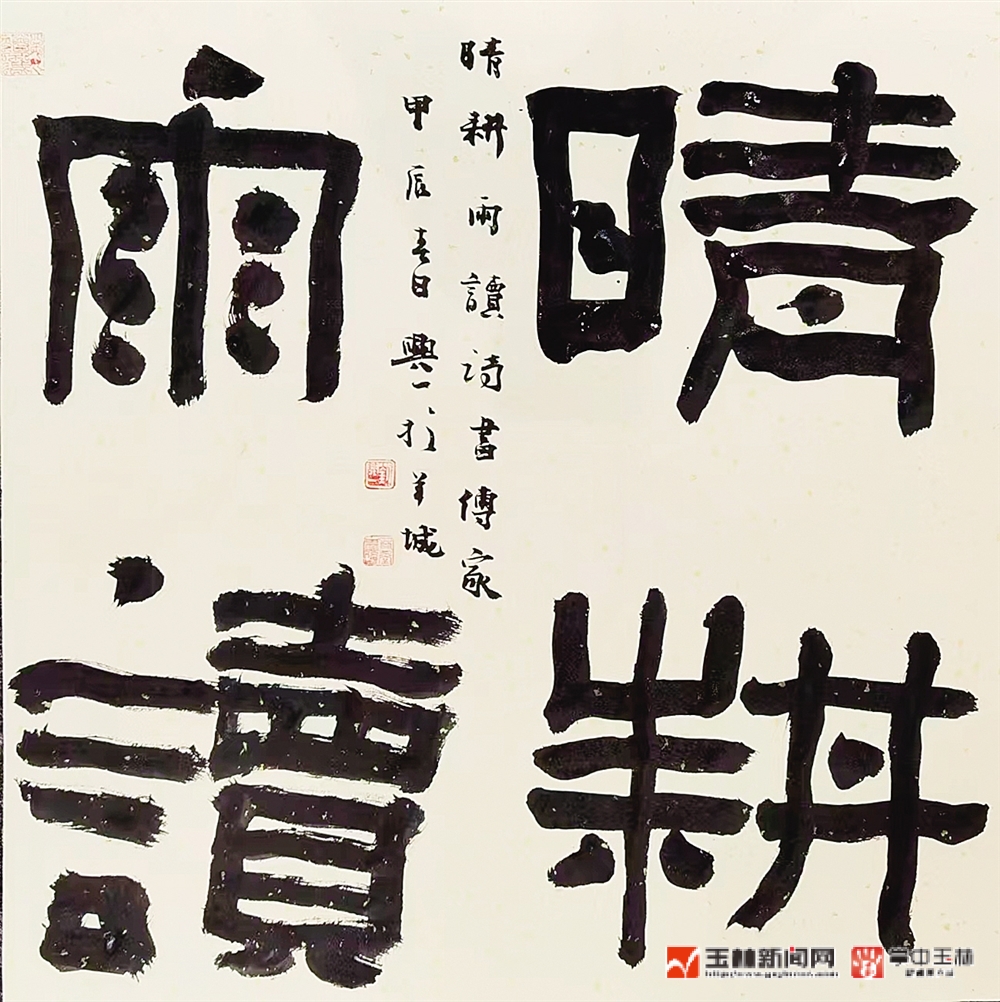 晴耕
雨讀
晴耕雨讀詩書傳家
甲辰春日興一於羊城
玉林新闻网
掌中玉林